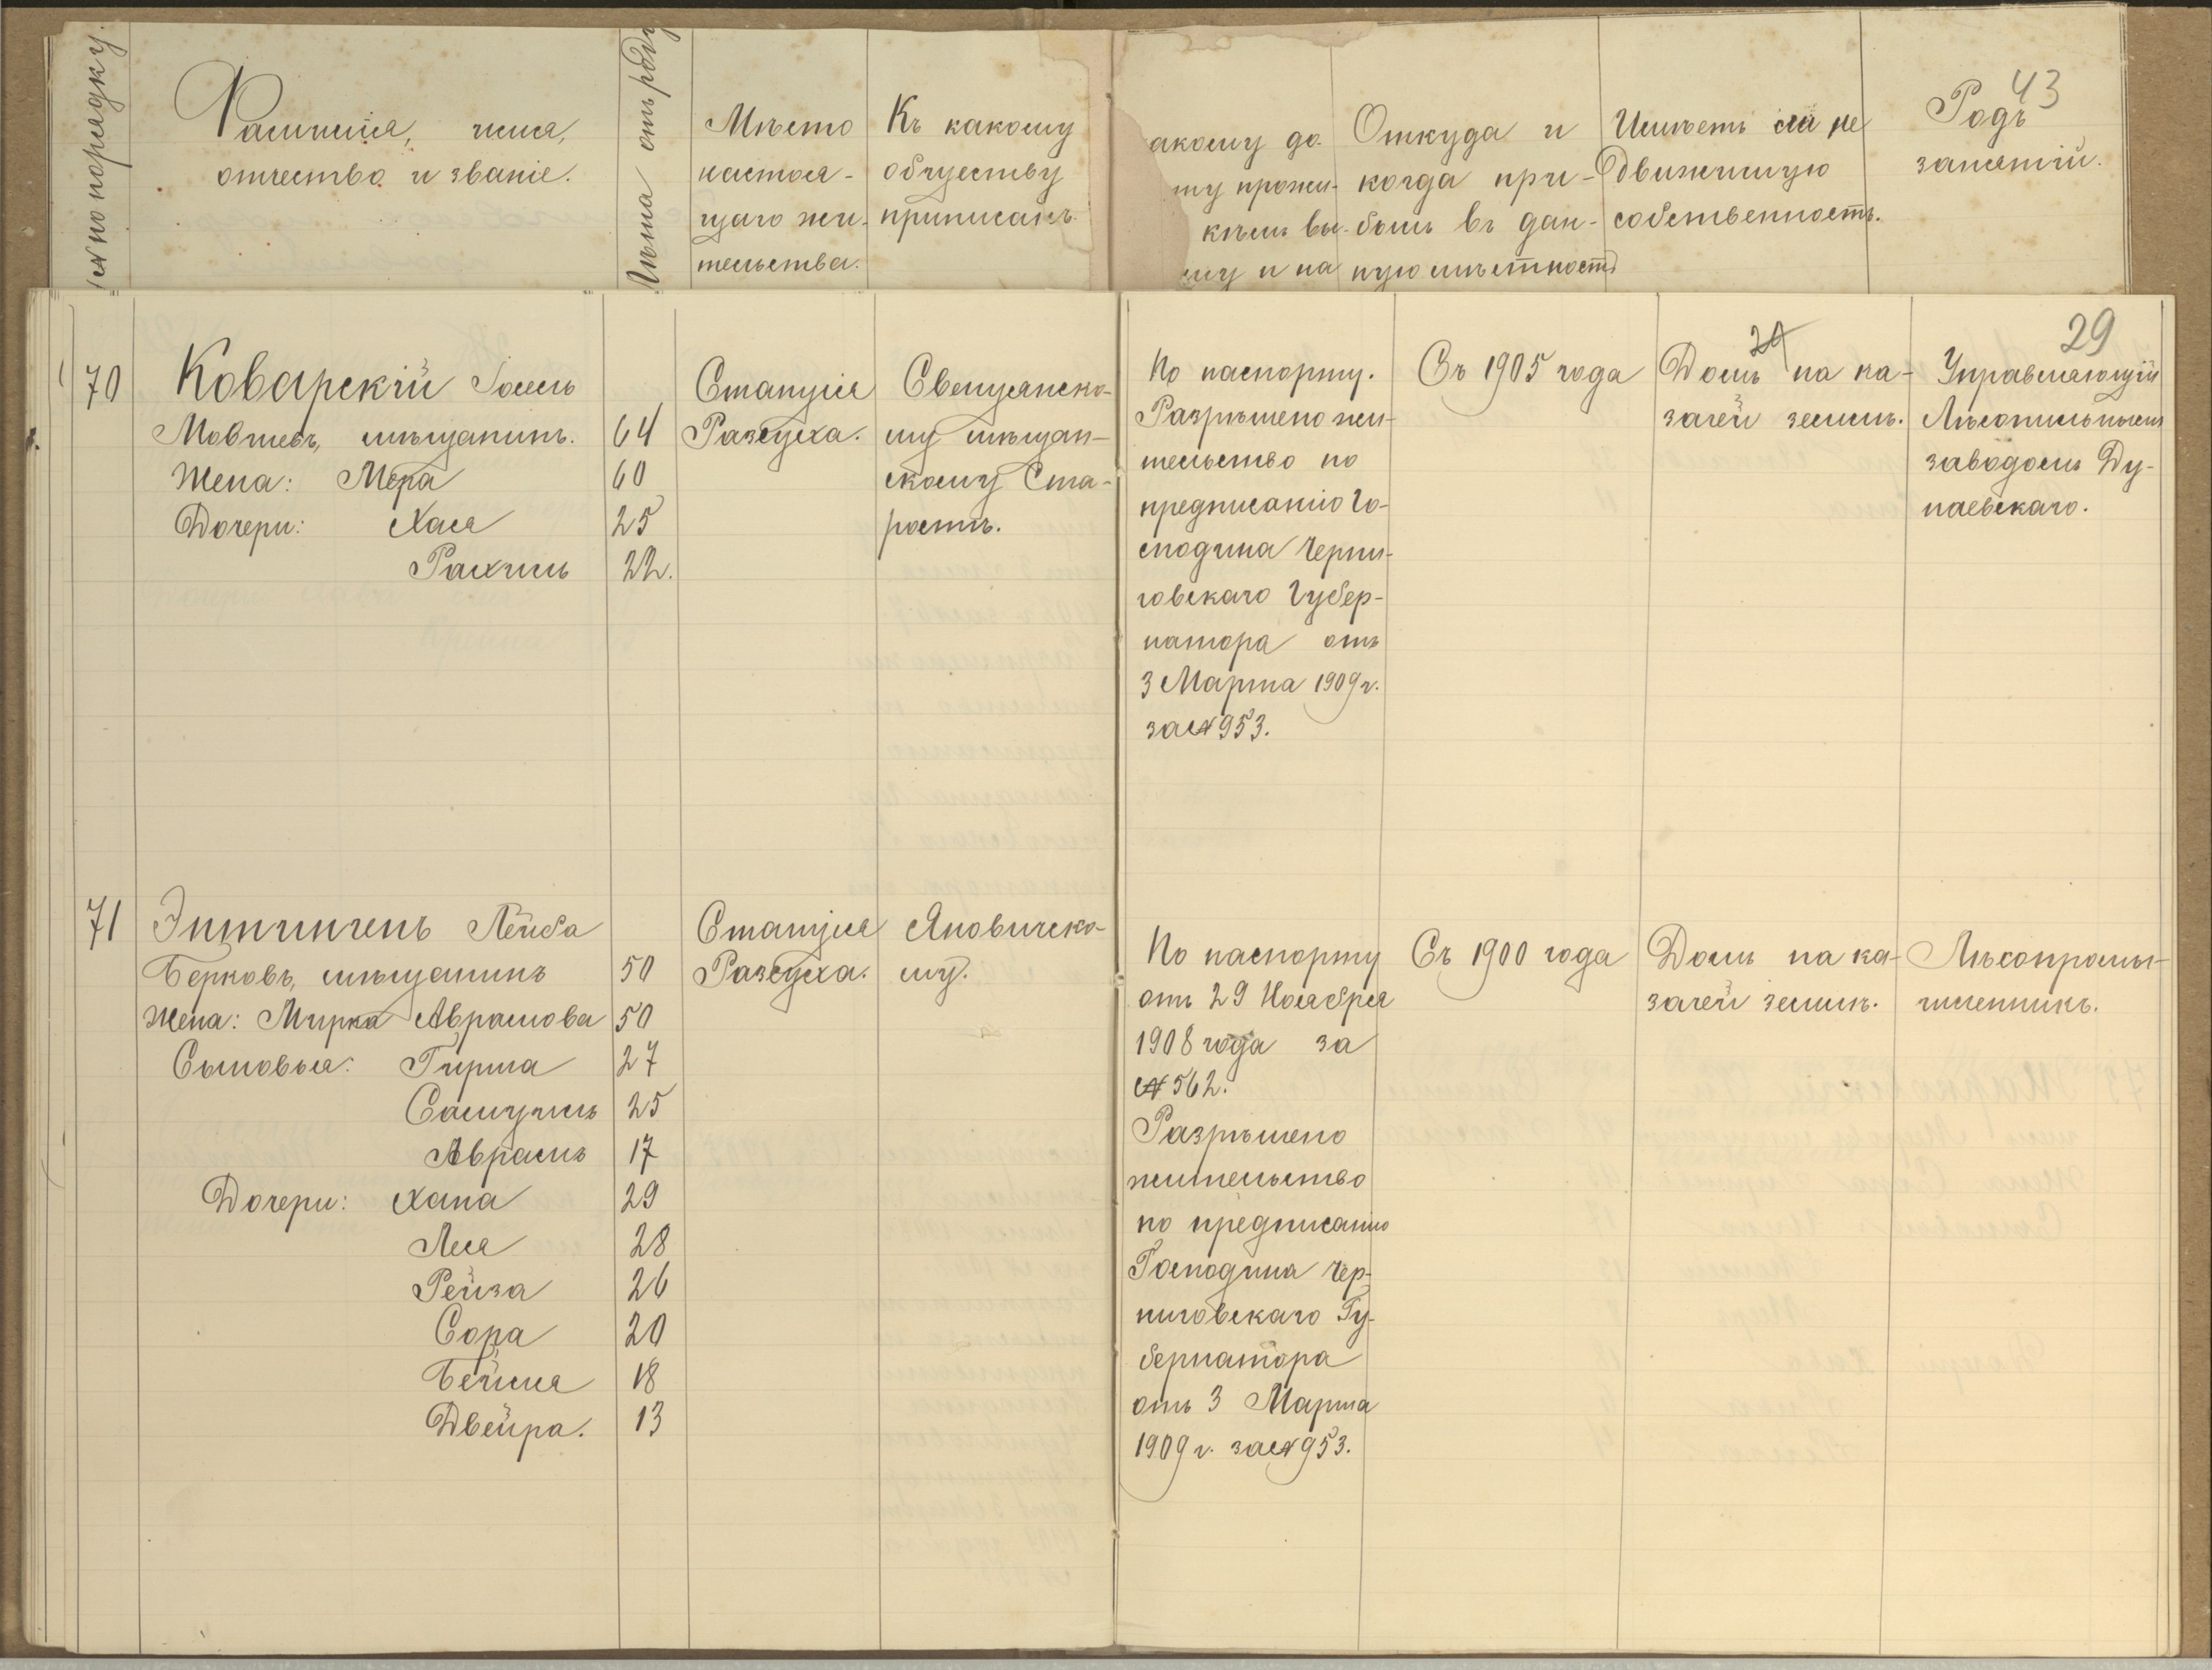 № по порядку.
Фамилія, имя,
отчество и званіе.
Лѣта отъ роду
Мѣсто
настоя-
щаго жи-
тельства.
Къ какому
обществу
приписанъ
акому до-
ту прожи-
кѣмъ вы-
му и на
Откуда и
когда при-
былъ въ дан-
ную мѣстность
Имѣетъ ли не
движимую
собственность.
43
Родъ
занятій.
29
70
Коварскій Іосель
Мовшевъ, мѣщанинъ. 64
Жена: Мера 60
Дочери: Хася 25
Рахиль 22.
Станція
Разсуха.
Свенцянско-
му мѣщан-
скому Ста-
ростѣ.
По паспорту.
Разрѣшено жи-
тельство по
предписанію Го-
сподина Черни-
говскаго Губер-
натора отъ
3 Марта 1909 г.
за № 953.
Съ 1905 года
Домъ на ка-
зачей землѣ.
Управляющій
Лѣсопильнымъ
заводомъ Ду-
наевскаго.
71
Энтинченъ Лейба
Берковъ, мѣщанинъ 50
Жена: Мирка Аврамова 50
Сыновья: Гирша 27
Самуилъ 25
Аврамъ 17
Дочери: Хана 29
Лея 28
Рейза 26
Сора 20
Бейля 18
Двейра. 13
Станція
Разсуха.
Яновичско-
му.
По паспорту
отъ 29 Ноября
1908 года за
№ 562.
Разрѣшено
жительство
по предписанію
Господина Чер-
ниговскаго Гу-
бернатора
отъ 3 Марта
1909 г. за № 953.
Съ 1900 года
Домъ на ка-
зачей землѣ.
Лѣсопромы-
шленникъ.